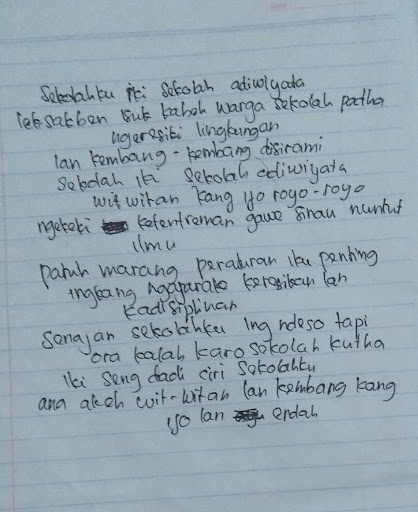 Sekolahku iki sekolah adiwiyata
Saben isuk kabeh warga sekolah padha
ngeresiki lingkungan
lan kembang-kembang disirami
Sekolah iki sekolah adiwiyata
wit witan kang ijo royo-royo
ngeteki ketentreman gawe sinau nuntut
ilmu
patuh marang peraturan iku penting
ingkang ngajarake keresikan lan
kadisiplinan
Senajan sekolahku ing ndeso tapi
ora kalah karo sekolah kutha
iki seng dadi ciri sekolahku
ana akeh wit-witan lan kembang kang
ijo lan endah